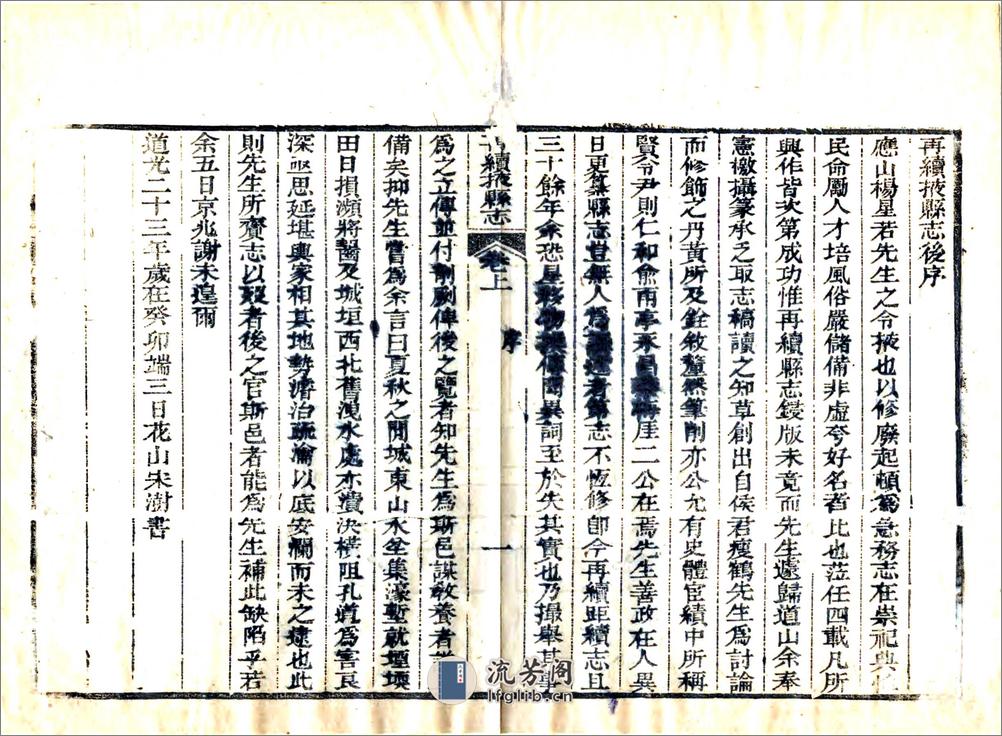 再續掖縣志後序
應山楊星若先生之令掖也以修廢起頓爲急務志在崇祀典
民命勵人才培風俗嚴儲備非虛夸好名者比也蒞任四載凡所
興作皆次第成功惟再續縣志鋟版未竟而先生遽歸道山余奉
憲檄攝篆承之取志稿讀之知草創出自侯君瘦鶴先生爲討論
而修飾之丹黃所及銓敘釐然筆削亦公允有史體宦績中所稱
賢令尹則仁和俞 二公在焉先生善政在人異
日更纂縣志豈無人爲 者第志不恆修卽今再續距續志且
三十餘年余恐星移物換傳聞異詞至於失其實也乃撮舉其事
爲之立傳並付剞劂俾後之覽者知先生爲斯邑謀敎養者
備矣抑先生嘗爲余言曰夏秋之間城東山水坌集濠塹就堙壞
田日損瀕將齧及城垣西北舊洩水處亦潰決橫阻孔道爲害良
深亟思延堪輿家相其地勢濬治疏瀹以底安瀾而未之逮也此
則先生所齎志以歿者後之官斯邑者能爲先生補此缺陷乎若
余五日京兆謝未遑爾
道光二十三年歲在癸卯端三日花山朱澍書
續掖縣志
卷上
序
一
流芳阁
lfglib.cn